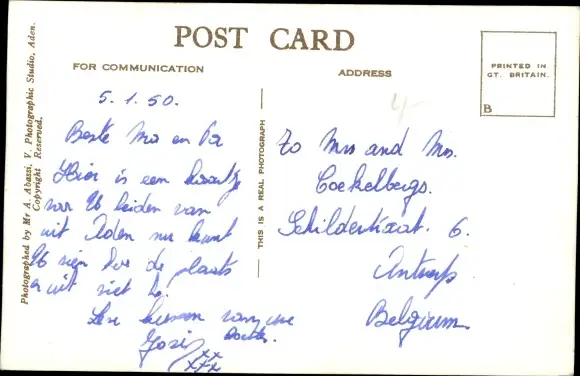 POST CARD
FOR COMMUNICATION
ADDRESS
PRINTED IN
GT. BRITAIN.
B
Photographed by Mr A. Abassi, V. Photographic Studio, Aden.
Copyright Reserved.
THIS IS A REAL PHOTOGRAPH
5.1.50.
Beste Ma en Pa
Hier is een kaartje
van
uit Aden nu kunt
zien hoe de plaats
er uit ziet
kussen van uwe
xx
xxx
4
To Mrs and Mr.
Coekelbergs.
Schilderstraat. 6.
Antwerp
Belgium